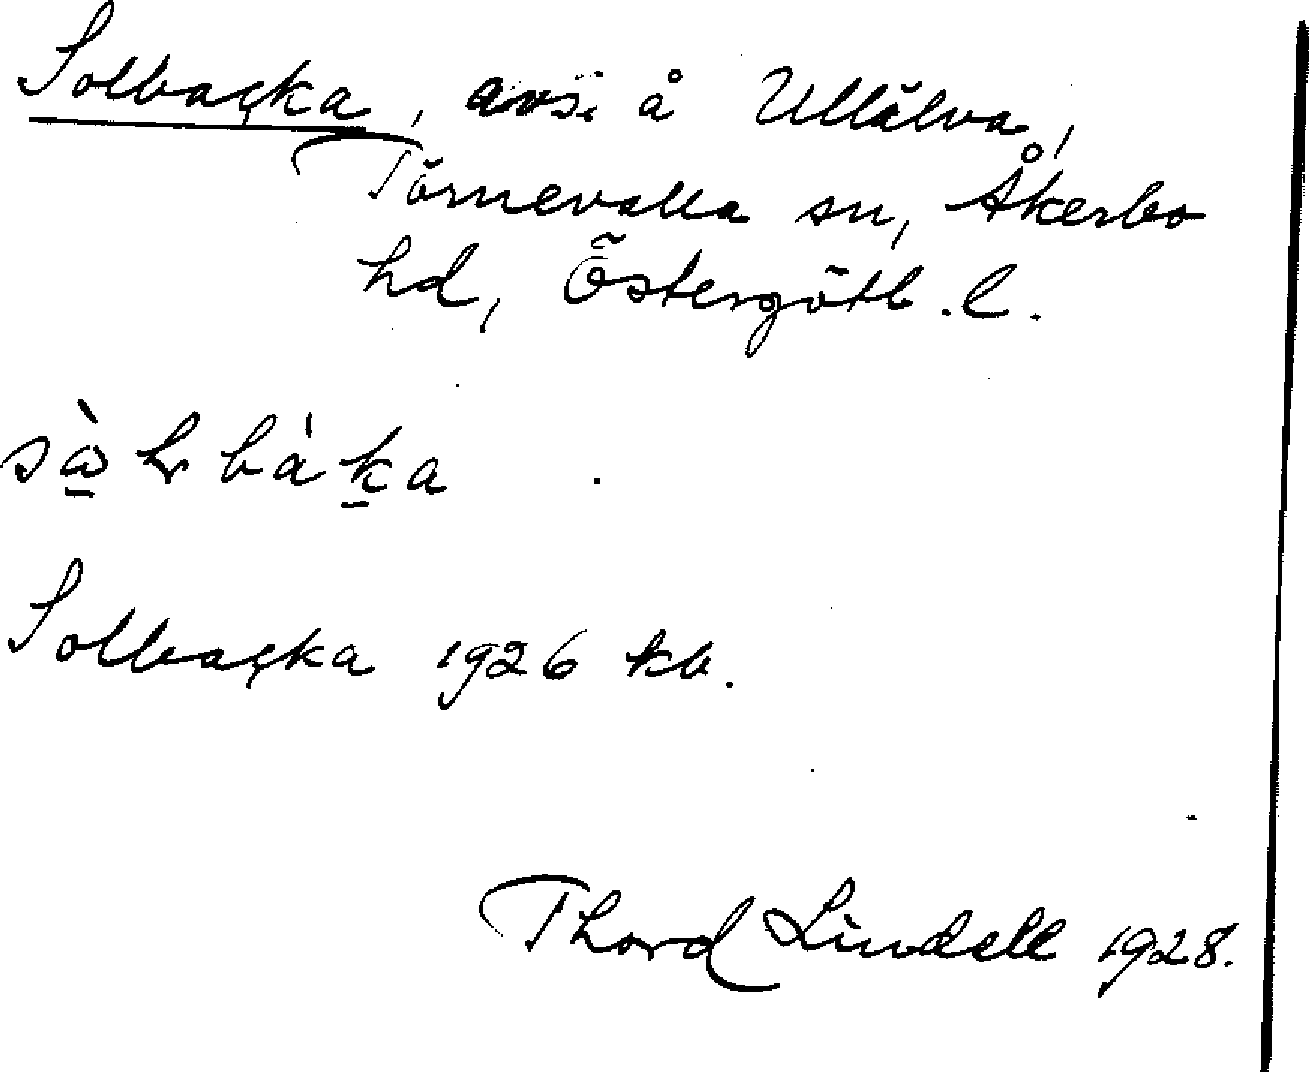 Solbacka, avs. å Ullälva,
Törnevalla sn, Åkerbo
hd, Östergötl. l.
Solbacka 1926 kb.
Thord Lindell 1928.